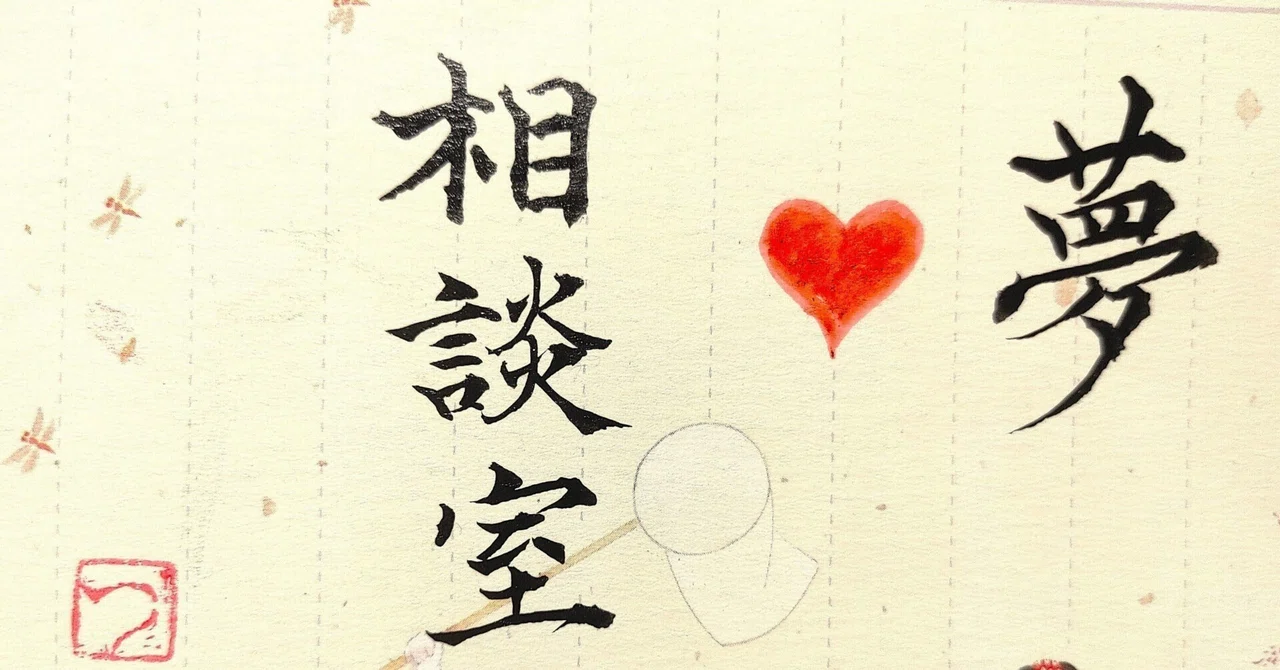 夢
相談室